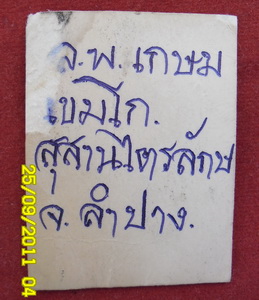 จ.พ. เกษม
เขมโก.
สุสานไตรลักษ
จ. ลำปาง.
25/09/2011 04